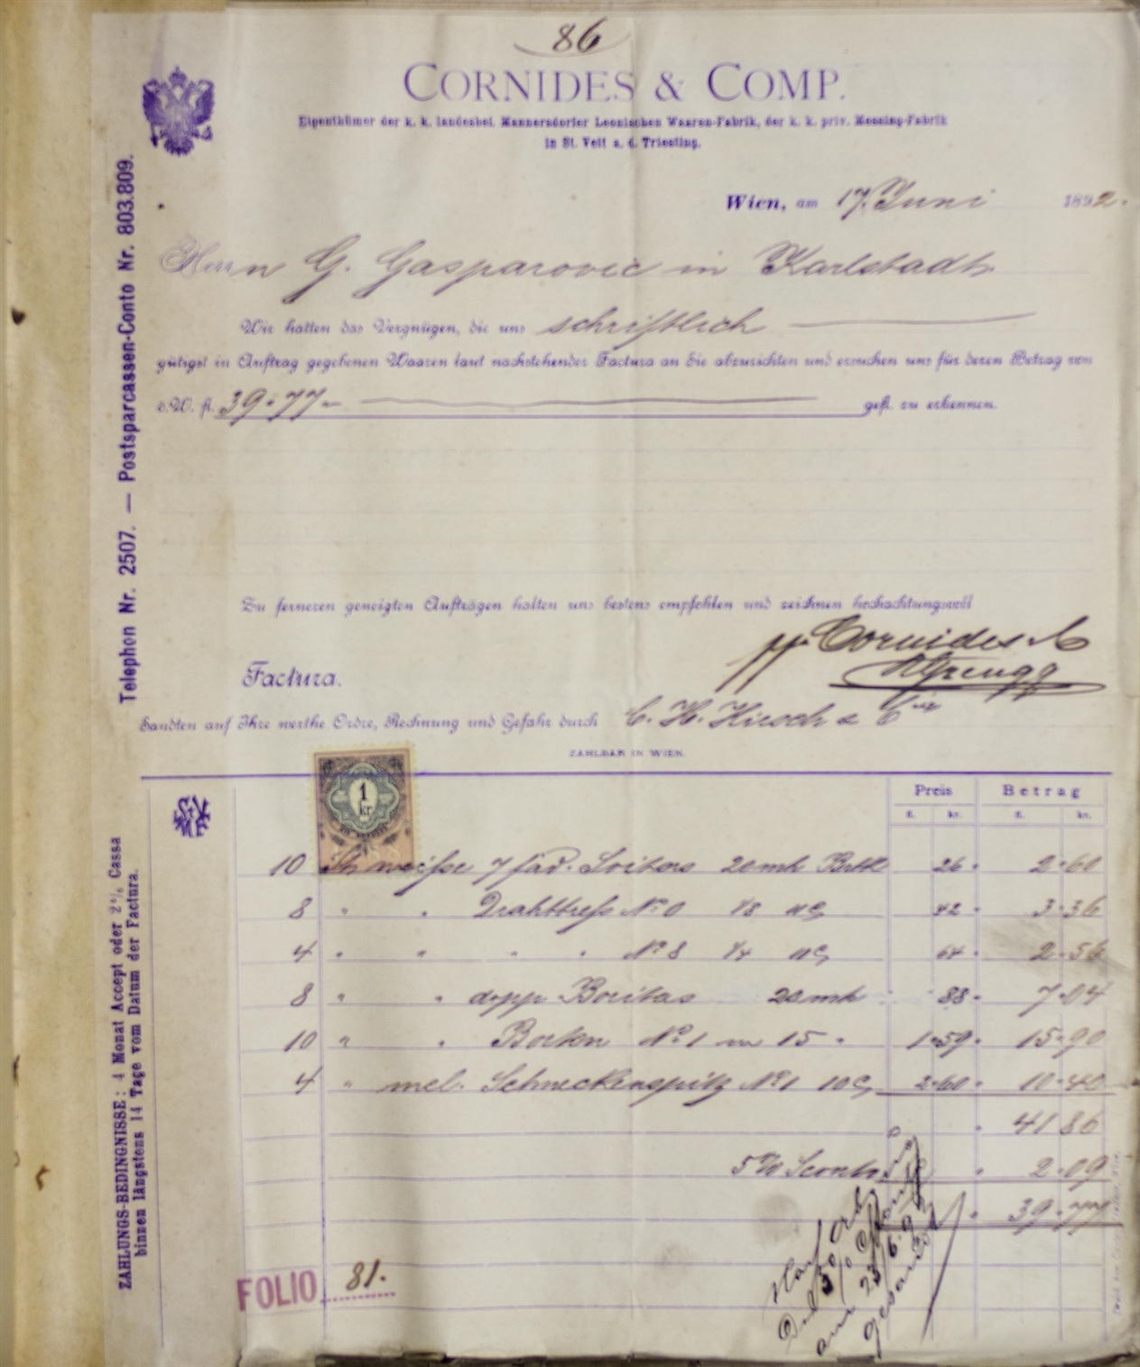 86
CORNIDES & COMP.
Eigenthümer der k. k. landesbef. Mannersdorfer Leonischen Waaren-Fabrik, der k. k. priv. Messing-Fabrik
in St. Veit a. d. Triesting.
Telephon Nr. 2507. — Postsparcassen-Conto Nr. 803.809.
Wien, am 17. Juni 1892.
Herrn G. Gasparovic in Karlstadt
Wir hatten das Vergnügen, die uns schriftlich
gütigst in Auftrag gegebenen Waaren laut nachstehender Factura an Sie abzurichten und ersuchen uns für deren Betrag von
ö.W. fl. 39.77.- gefl. zu erkennen.
Zu ferneren geneigten Aufträgen halten uns bestens empfohlen und zeichnen hochachtungsvoll
pp. Cornides & C
Factura.
Sandten auf Ihre werthe Ordre, Rechnung und Gefahr durch C. H. Hirsch & C
ZAHLBAR IN WIEN.
Preis Betrag
fl. kr. fl. kr.
1
kr.
10 weisse 7 fäd. 26. 2.60
8 " " Drahttress No 0 1/8 42. 3.36
4 " " " " No 8 1/4 64. 2.56
8 " " dopp 88. 7.04
10 " " Borten No 1 m 15 " 1.59. 15.90
4 " mel. No 1 10 2.60. 10.40
41 86
5% Sconto 2.09
39.77
ZAHLUNGS-BEDINGNISSE: 4 Monat Accept oder 2% Cassa
binnen längstens 14 Tage vom Datum der Factura.
am 23/6. 92
gesandt
FOLIO 81.